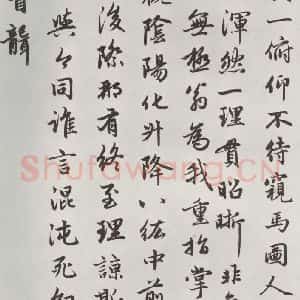 一俯仰不待窺馬圖人
渾然一理貫昭晰非
無極翁為我重指掌
陰陽化升降八紘中前
後際那有終至理諒斯
與今同誰言混沌死
盲聾
Shufawang.CN